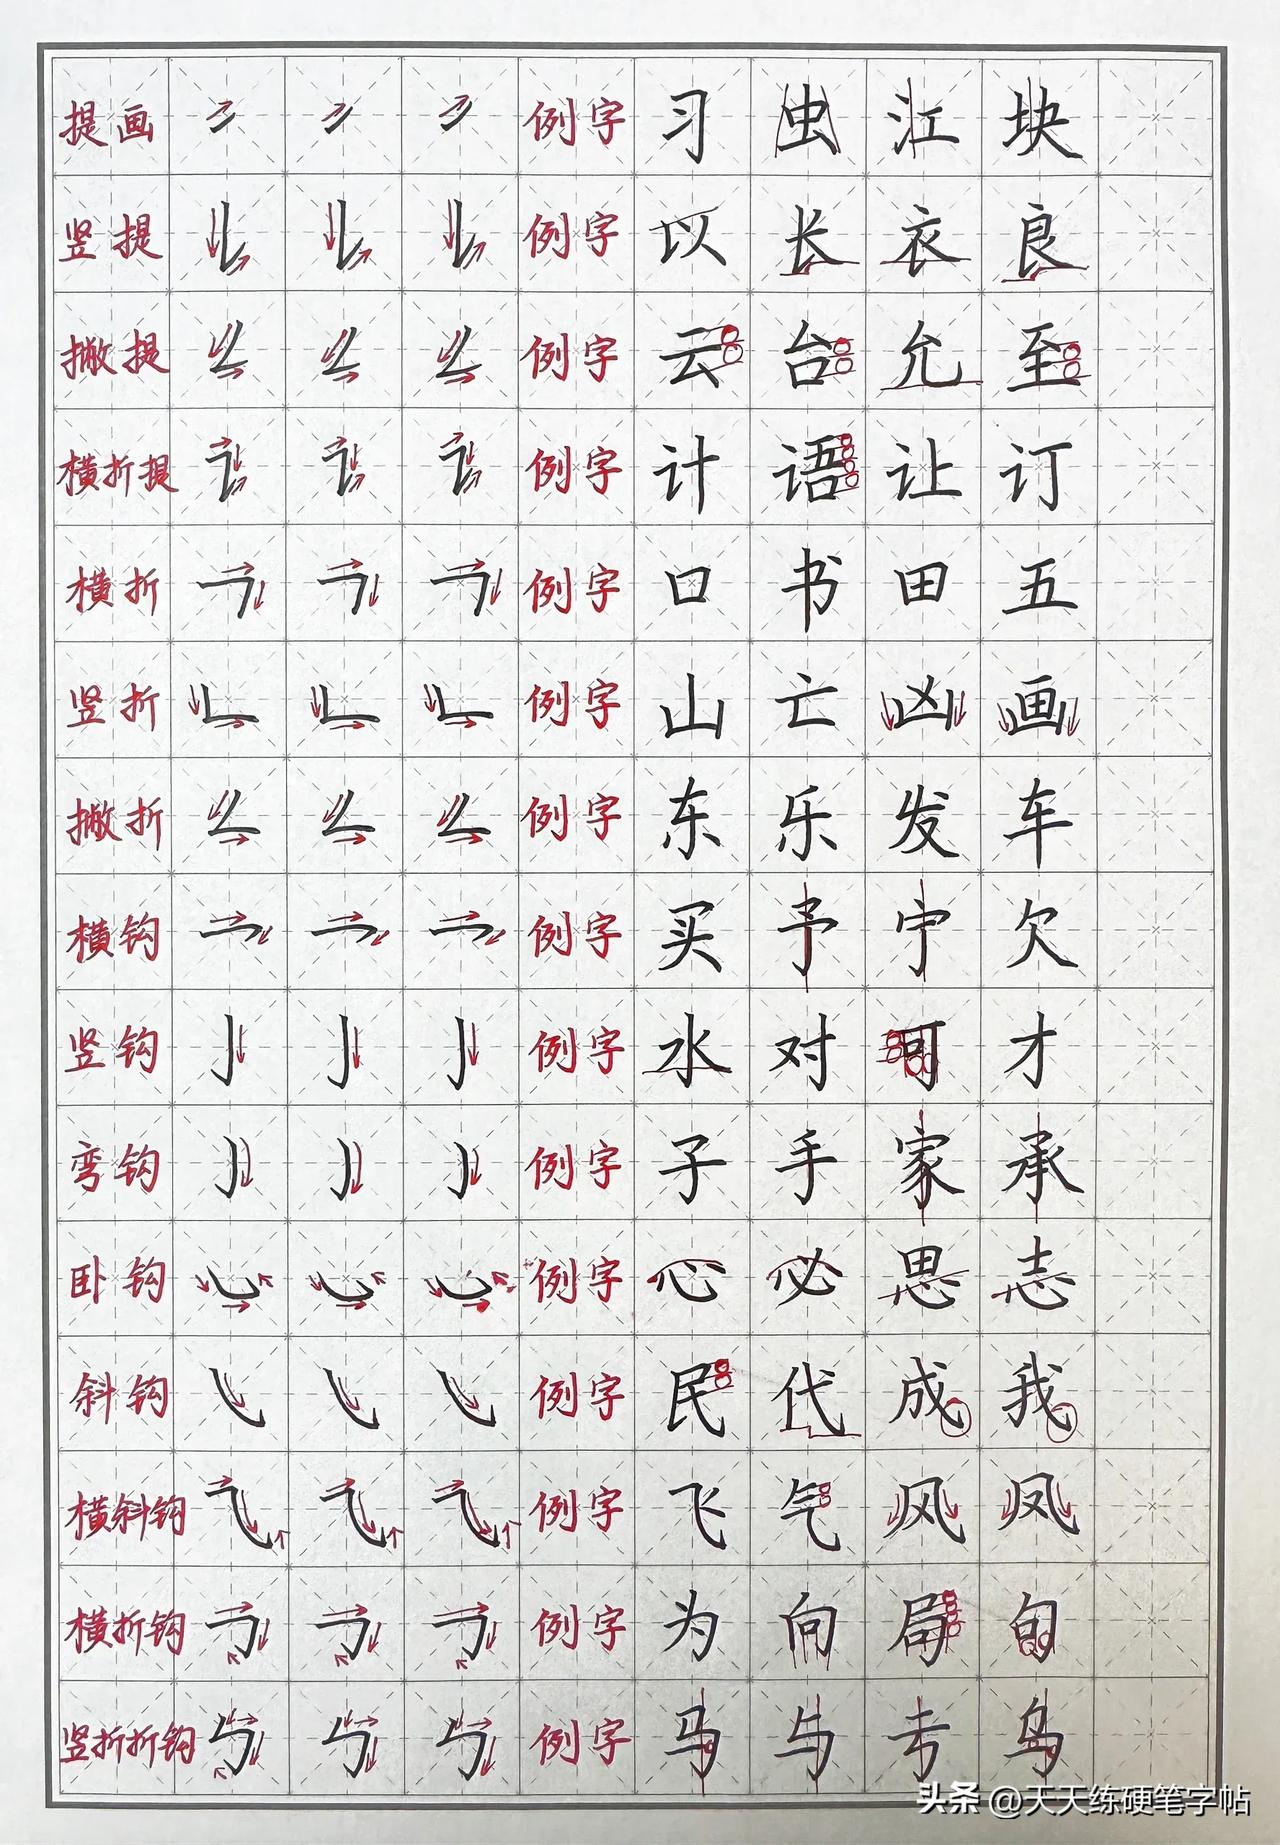 提画 例字 习 虫 江 块
竖提 例字 以 长 衣 良
撇提 例字 云 台 允 至
横折提 例字 计 语 让 订
横折 例字 口 书 田 五
竖折 例字 山 亡 凶 画
撇折 例字 东 乐 发 车
横钩 例字 买 予 宁 欠
竖钩 例字 水 对 可 才
弯钩 例字 子 手 家 承
卧钩 例字 心 必 思 志
斜钩 例字 民 代 成 我
横斜钩 例字 飞 气 风 凤
横折钩 例字 为 向 局 旬
竖折折钩 例字 马 与 鸟
头条 @天天练硬笔字帖